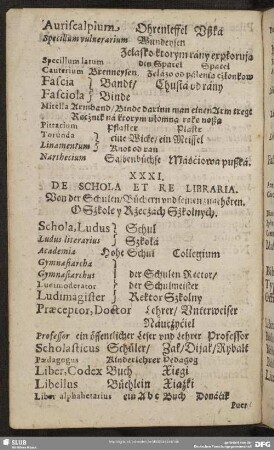 Auriscalpium Ohrenleffel Uſſká
Specillum vulnerarium Wundeyſen
Żelaſko ktorym rány explorują
Specillum latum ein Spatel Spatel
Cauterium Brenneyſen Żelázo od palenia członkow
Fascia } Bandt/ Chuſtá od rány
Fasciola } Binde
Mitella Armband/ Binde darinn man einen Arm tregt
Ptttacium Pflaſter Plaſtr
Torúnda } eine Wicke/ ein Meiſſel
Linamentum } Knot od ran
Narthecium Salbenbüchſe Máśćiowa puſzká.
XXXI.
DE SCHOLA ET RE LIBRARIA.
Von der Schulen/ Büchern und ſeinen zugehören.
O Szkole y Rzeczách Szkolnych.
Schola, Ludus } Schul
Ludus literarius } Szkołá
Academia Hohe Schul Collegium
Gymnaſiarcha }
Gymnaſiarchus } der Schulen Rector/
Ludimoderator } der Schulmeiſter
Ludimagiſter } Rektor Szkolny
Præceptor, Doctor Lehrer/ Unterweiſer
Náucżyćiel
Profeſſor ein öffentlicher Leſer und Lehrer Profeſſor
Scholaſticus Schüler/ Żak/ Dijak/ Rybałt
Pædagogus Kinderlehrer Pedagog
Liber, Codex Buch Xięgi
Libellus Büchlein Xiąſzki
Liber alphabetarius ein Abc Buch
Puer
SLUB
DFG